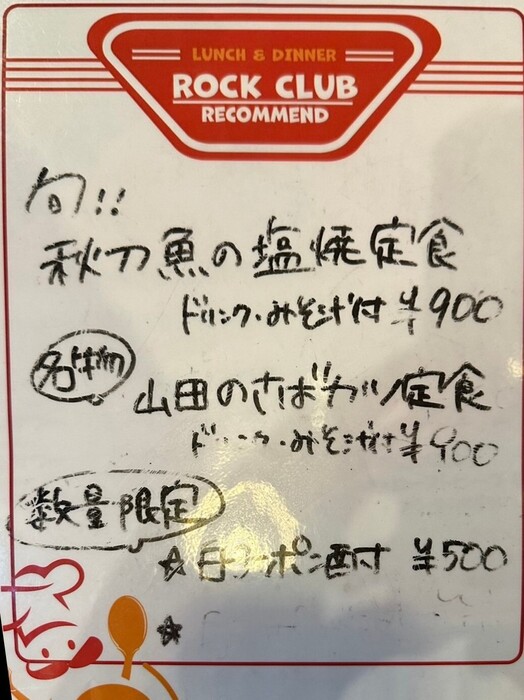 LUNCH & DINNER
ROCK CLUB
RECOMMEND
旬!!
秋刀魚の塩焼定食
ドリンク・みそ汁付 ¥900
名物
山田のさばカツ定食
ドリンク・みそ汁付 ¥900
数量限定
☆白子ポン酒付 ¥500
☆